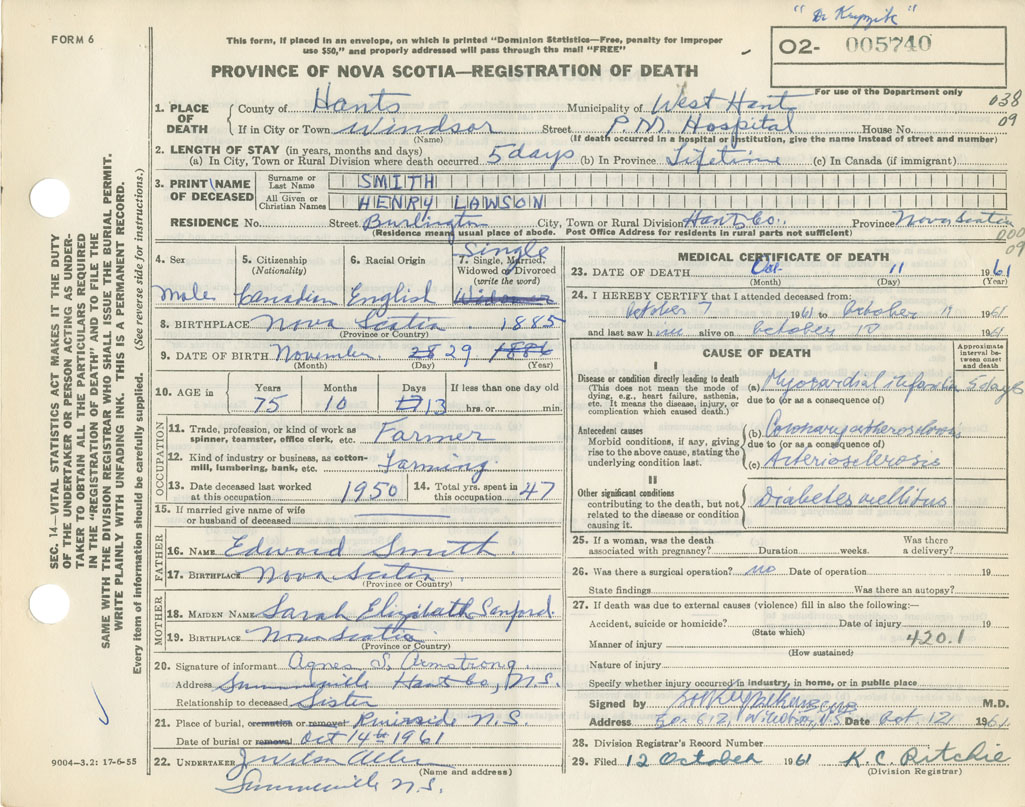 "Dr Krypzik"
FORM 6
This form, if placed in an envelope, on which is printed "Dominion Statistics—Free, penalty for improper
use $50," and properly addressed will pass through the mail "FREE"
O2- 005740
For use of the Department only
PROVINCE OF NOVA SCOTIA—REGISTRATION OF DEATH
038
09
1. PLACE OF DEATH County of Hants Municipality of West Hant
If in City or Town Windsor Street P.M. Hospital House No.
(Name) (If death occurred in a hospital or institution, give the name instead of street and number)
2. LENGTH OF STAY (in years, months and days)
(a) In City, Town or Rural Division where death occurred 5 days (b) In Province Lifetime (c) In Canada (if immigrant)
3. PRINT NAME OF DECEASED Surname or Last Name SMITH
All Given or Christian Names HENRY LAWSON
RESIDENCE No. Street Burlington City, Town or Rural Division Hants Co. Province Nova Scotia
(Residence means usual place of abode. Post Office Address for residents in rural parts not sufficient)
000
09
4. Sex Male
5. Citizenship (Nationality) Canadian
6. Racial Origin English
7. Single, Married, Widowed or Divorced (write the word) Single Widower
8. BIRTHPLACE Nova Scotia 1885
(Province or Country)
9. DATE OF BIRTH November 28 29 1886
(Month) (Day) (Year)
10. AGE in Years 75 Months 10 Days 13 If less than one day old hrs. or min.
OCCUPATION
11. Trade, profession, or kind of work as spinner, teamster, office clerk, etc. Farmer
12. Kind of industry or business, as cotton-mill, lumbering, bank, etc. Farming
13. Date deceased last worked at this occupation 1950
14. Total yrs. spent in this occupation 47
15. If married give name of wife or husband of deceased
FATHER
16. NAME Edward Smith
17. BIRTHPLACE Nova Scotia
(Province or Country)
MOTHER
18. MAIDEN NAME Sarah Elizabeth Sanford
19. BIRTHPLACE Nova Scotia
(Province or Country)
20. Signature of informant Agnes S. Armstrong
Address Summerville Hants Co, N.S.
Relationship to deceased Sister
21. Place of burial, cremation or removal Riverside N.S
Date of burial or removal Oct 14th 1961
22. UNDERTAKER J Wilson Allen
(Name and address)
Summerville N.S.
9004—3.2: 17-6-55
MEDICAL CERTIFICATE OF DEATH
23. DATE OF DEATH Oct- 11 1961
(Month) (Day) (Year)
24. I HEREBY CERTIFY that I attended deceased from:
October 7 1961 to October 11 1961
and last saw him alive on October 10 1961
CAUSE OF DEATH
Approximate interval between onset and death
I
Disease or condition directly leading to death
(This does not mean the mode of dying, e.g., heart failure, asthenia, etc. It means the disease, injury, or complication which caused death.)
(a) Myocardial infarction 5 days
due to (or as a consequence of)
Antecedent causes
Morbid conditions, if any, giving rise to the above cause, stating the underlying condition last.
(b) Coronary atherosclerosis
due to (or as a consequence of)
(c) Arteriosclerosis
II
Other significant conditions
contributing to the death, but not related to the disease or condition causing it.
Diabetes mellitus
25. If a woman, was the death associated with pregnancy? Duration weeks. Was there a delivery?
26. Was there a surgical operation? no Date of operation 19
State findings Was there an autopsy?
27. If death was due to external causes (violence) fill in also the following:—
Accident, suicide or homicide? Date of injury 19
(State which)
Manner of injury 420.1
(How sustained)
Nature of injury
Specify whether injury occurred in industry, in home, or in public place
Signed by M.D.
Address Box 612, Windsor, N.S. Date Oct. 12 1961
28. Division Registrar's Record Number
29. Filed 12 October 1961 K. C. Ritchie
(Division Registrar)
SEC. 14—VITAL STATISTICS ACT MAKES IT THE DUTY
OF THE UNDERTAKER OR PERSON ACTING AS UNDER-
TAKER TO OBTAIN ALL THE PARTICULARS REQUIRED
IN THE "REGISTRATION OF DEATH" AND TO FILE THE
SAME WITH THE DIVISION REGISTRAR WHO SHALL ISSUE THE BURIAL PERMIT.
WRITE PLAINLY WITH UNFADING INK. THIS IS A PERMANENT RECORD.
Every item of information should be carefully supplied. (See reverse side for instructions.)